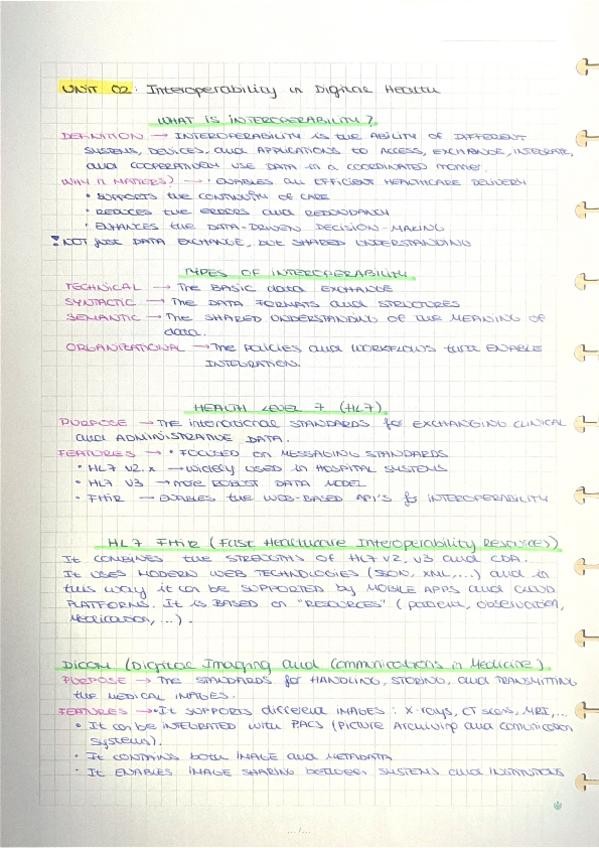 UNIT 02: Interoperability in Digital Health
WHAT IS INTEROPERABILITY?
DEFINITION → INTEROPERABILITY IS THE ABILITY OF DIFFERENT
SYSTEMS, DEVICES, and APPLICATIONS TO ACCESS, EXCHANGE, INTEGRATE,
and COOPERATIVELY USE DATA in a COORDINATED manner.
WHY IT MATTERS? → • ENABLES an EFFICIENT HEALTHCARE DELIVERY
• SUPPORTS the CONTINUITY OF CARE
• REDUCES the ERRORS and REDUNDANCY
• ENHANCES the DATA-DRIVEN DECISION-MAKING
NOT JUST DATA EXCHANGE, BUT SHARED UNDERSTANDING
TYPES OF INTEROPERABILITY
TECHNICAL → The BASIC data EXCHANGE
SYNTACTIC → The DATA FORMATS and STRUCTURES
SEMANTIC → The SHARED UNDERSTANDING OF the MEANING OF
data.
ORGANIZATIONAL → The POLICIES and WORKFLOWS that ENABLE
INTEGRATION.
HEALTH LEVEL 7 (HL7)
PURPOSE → The international STANDARDS for EXCHANGING CLINICAL
and ADMINISTRATIVE DATA.
FEATURES → • FOCUSED on MESSAGING STANDARDS
• HL7 V2.x → widely USED in HOSPITAL SYSTEMS
• HL7 V3 → more ROBUST DATA MODEL
• FHIR → ENABLES the WEB-BASED API'S for INTEROPERABILITY
HL7 FHIR (Fast Healthcare Interoperability Resources)
It COMBINES the STRENGTHS OF HL7 V2, V3 and CDA.
It USES MODERN WEB TECHNOLOGIES (JSON, XML,...) and in
this way it can be SUPPORTED by MOBILE APPS and CLOUD
PLATFORMS. It is BASED on "RESOURCES" (patient, observation,
Medication, ...).
DICOM (Digital Imaging and Communications in Medicine)
PURPOSE → The STANDARDS for HANDLING, STORING, and TRANSMITTING
the MEDICAL IMAGES.
FEATURES → • It SUPPORTS different IMAGES: X-rays, CT scans, MRI,...
• It can be INTEGRATED with PACS (Picture Archiving and Comunication
Systems).
• It CONTAINS both IMAGE and METADATA
• It ENABLES IMAGE SHARING between SYSTEMS and INSTITUTIONS
.../...